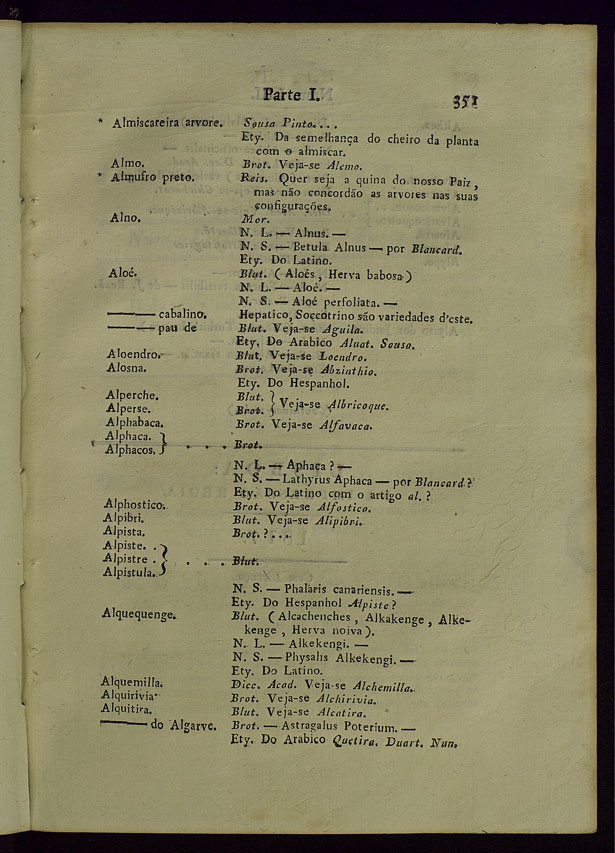 Parte I. 351
* Almiscareira arvore. Sousa Pinto....
Ety. Da semelhança do cheiro da planta
com o almiscar.
Almo. Brot. Veja-se Alemo.
* Almufro preto. Reis. Quer seja a quina do nosso Paiz,
mas não concordão as arvores nas suas
configurações.
Alno. Mor.
N. L. — Alnus. —
N. S. — Betula Alnus — por Blancard.
Ety. Do Latino.
Aloé. Blut. (Aloés, Herva babosa)
N. L. — Aloé. —
N. S. — Aloé perfoliata. —
——— cabalino. Hepatico, Soccotrino são variedades d'este.
——— pau de Blut. Veja-se Aguila.
Ety. Do Arabico Aluat. Sousa.
Aloendro. Blut. Veja-se Loendro.
Alosna. Brot. Veja-se Abzinthio.
Ety. Do Hespanhol.
Alperche. Blut. } Veja-se Albricoque.
Alperse. Brot.
Alphabaca. Brot. Veja-se Alfavaca.
Alphaca. } . . . Brot.
Alphacos.
N. L. — Aphaca ? —
N. S. — Lathyrus Aphaca — por Blancard ?
Ety. Do Latino com o artigo al. ?
Alphostico. Brot. Veja-se Alfostico.
Alpibri. Blut. Veja-se Alipibri.
Alpista. Brot. ?...
Alpiste. .
Alpistre . } . . . Blut.
Alpistula.
N. S. — Phalaris canariensis. —
Ety. Do Hespanhol Alpiste ?
Alquequenge. Blut. (Alcachenches, Alkakenge, Alke-
kenge, Herva noiva).
N. L. — Alkekengi. —
N. S. — Physalis Alkekengi. —
Ety. Do Latino.
Alquemilla. Dicc. Acad. Veja-se Alchemilla.
Alquirivia. Brot. Veja-se Alchirivia.
Alquitira. Blut. Veja-se Alcatira.
——— do Algarve. Brot. — Astragalus Poterium. —
Ety. Do Arabico Quetira. Duart. Nun.